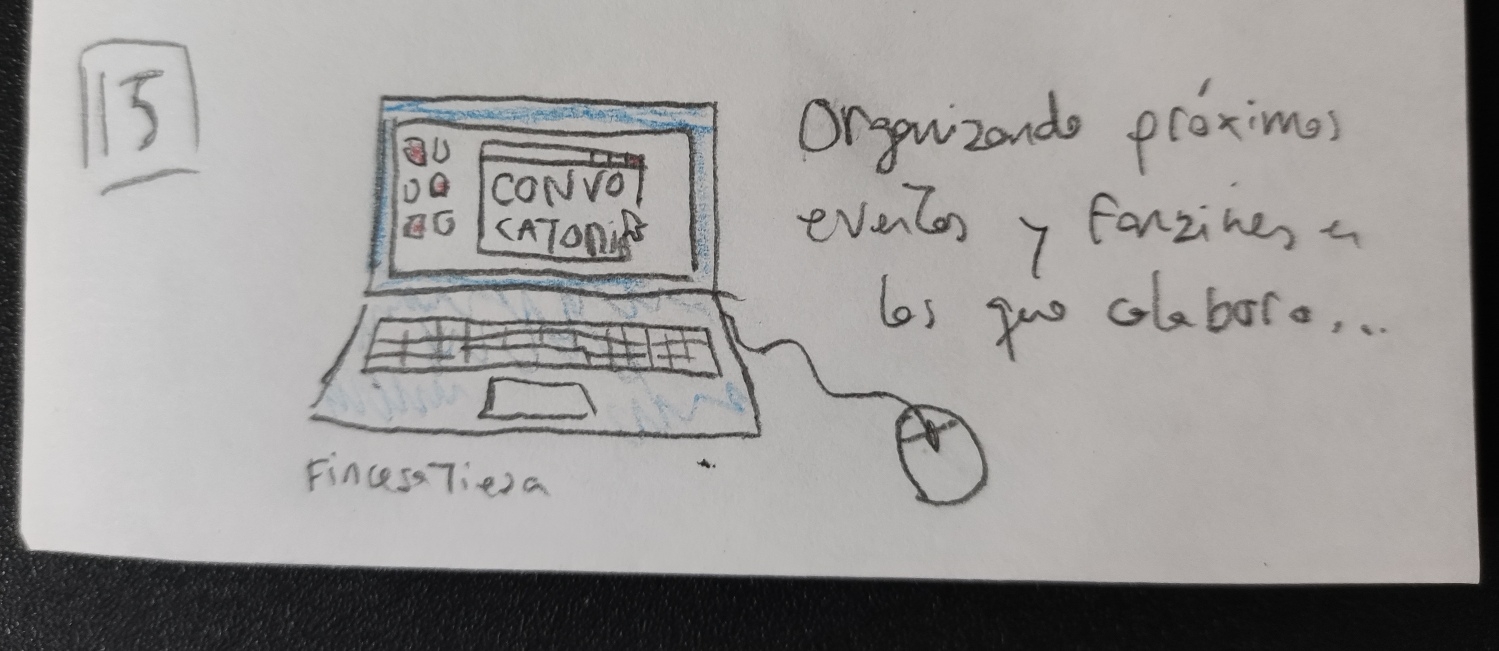 15
CONVO
CATORIA
Organizando próximos
eventos y fanzines en
los que colaboro...
FincesaTiesa